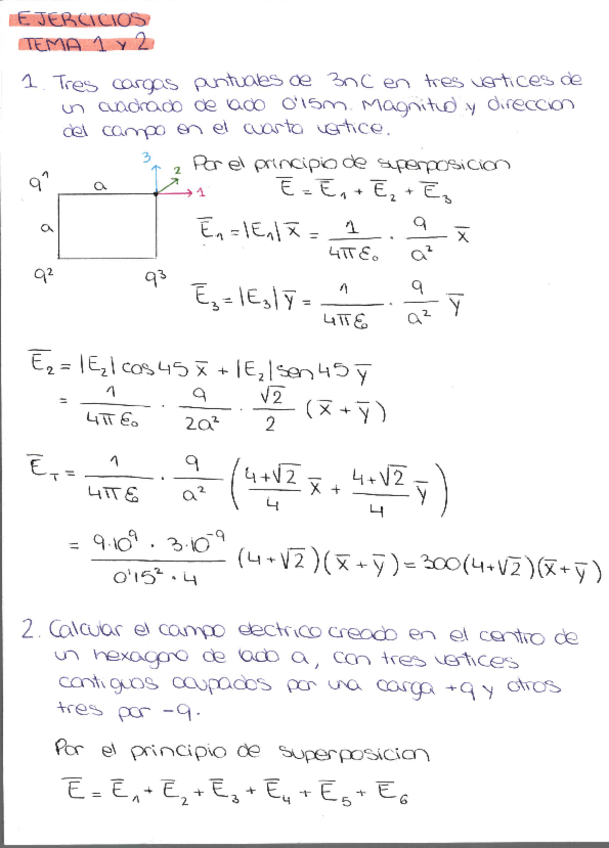 EJERCICIOS
TEMA 1 y 2
1. Tres cargas puntuales de 3nC en tres vertices de
un cuadrado de lado 0'15m. Magnitud y direccion
del campo en el cuarto vertice.
Por el principio de superposicion
E̅ = E̅₁ + E̅₂ + E̅₃
3
2
1
q¹ a
a
q² q³
E̅₁ = |E₁| x̅ = 1/4πε₀ · q/a² x̅
E̅₃ = |E₃| y̅ = 1/4πε₀ · q/a² y̅
E̅₂ = |E₂| cos45 x̅ + |E₂| sen45 y̅
= 1/4πε₀ · q/2a² · √2/2 (x̅ + y̅)
E̅_T = 1/4πε₀ · q/a² (4+√2/4 x̅ + 4+√2/4 y̅)
= 9·10⁹ · 3·10⁻⁹/0'15² · 4 (4+√2)(x̅ + y̅) = 300(4+√2)(x̅+y̅)
2. Calcular el campo electrico creado en el centro de
un hexagono de lado a, con tres vertices
contiguos ocupados por una carga +q y otros
tres por -q.
Por el principio de superposicion
E̅ = E̅₁ + E̅₂ + E̅₃ + E̅₄ + E̅₅ + E̅₆